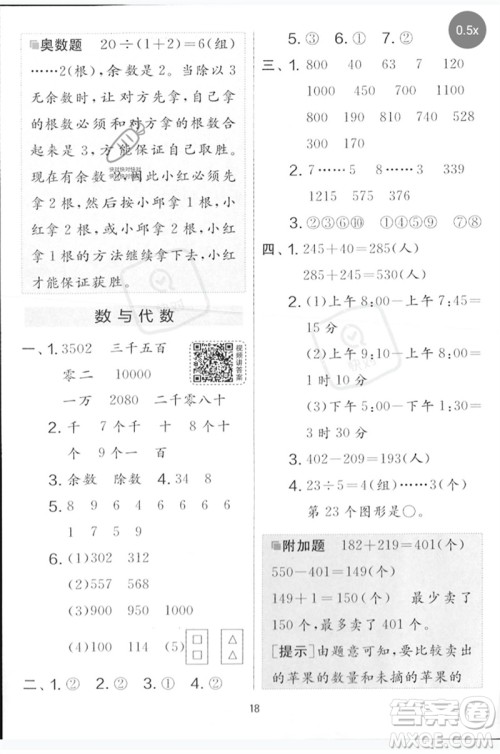 奥数题 20÷(1+2)=6(组)
……2(根),余数是2。当除以3
无余数时,让对方先拿,自己拿
的根数必须和对方拿的根数合
起来是3根,方能保证自己取胜。
现在有余数2,小红必须先拿2
根,然后小邱拿1根,小红拿2
根或者小邱拿2根,小红拿1
根的方法继续拿下去,小红
才能保证获胜。
数与代数
一、1. 3502 三千五百
零二 10000
一万 2080 二千零八十
视频讲答案
2. 千 7个千 十 8个十
个 9个一
3. 余数 除数 4. 34 8
5. 8 9 4 6 6 6 9
1 7 5 9
6. (1)302 312
(2)557 568
(3)900 950 1000
(4)100 114 (5)□□ △△
二、1. ① ② 2. ② 3. ② 4. ②
5. ③ 6. ① 7. ②
三、1. 800 40 63 7 120
1000 400 435 1000
830 700 200 100
307 150
2. 7……5 7 8……5
1215 575 1261
3. ②⑤⑥⑩ ①③④⑦⑧⑨
四、1. 245+40=285(人)
285+245=530(人)
2. (1)上午 8:00-上午
7:00=1时
(2)上午 9:00-上午
8:00=1时
(3)下午 1:30-下午
1:00=30分
1时30分
3. 402-209=193(只)
4. 23÷5=4(组)……3(个)
第 23 个图形是○。
附加题 182+219=401(个)
550-401=149(个)
149+1=150(个) 最少卖了
150 个,最多卖了 401 个。
[提示]由题意可知,要比较卖出
的苹果的数量和未摘的苹果的
18
0.5x
答案圈
MXQE.COM